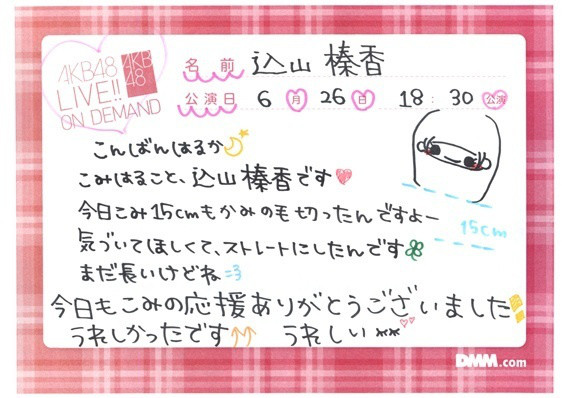 AKB48
LIVE!!
ON DEMAND
AKB
48
名前 込山榛香
公演日 6月 26日 18:30公演
こんばんはるか
こみはること、込山榛香です
今日こみ15cmもかみのも切ったんですよー
気づいてほしくて、ストレートにしたんです
まだ長いけどね=3
15cm
今日もこみの応援ありがとうございました
うれしかったです↑↑ うれしい**
DMM.com